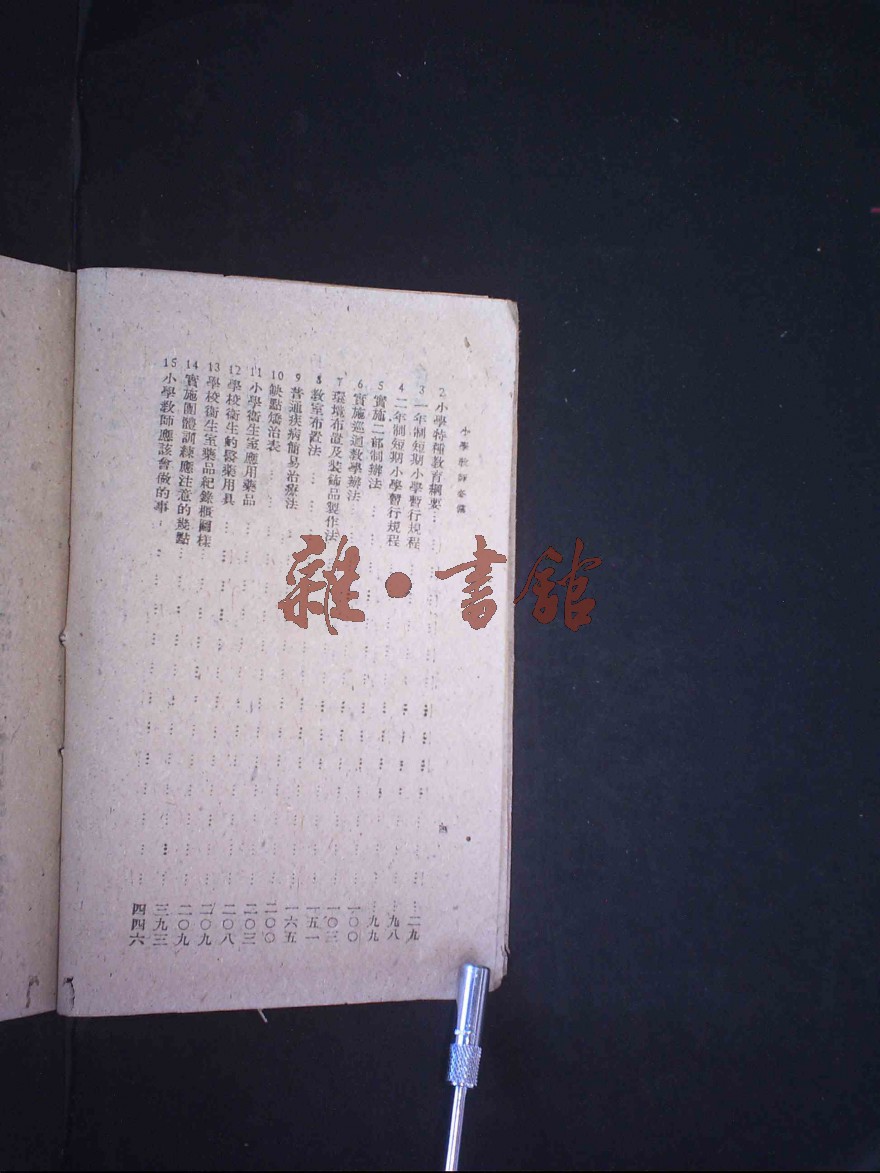 小學教師必備
四
2 小學特種教育綱要……二九
3 一年制短期小學暫行規程……九八
4 二年制短期小學暫行規程……九九
5 實施二部制辦法……一〇〇
6 實施巡迴教學辦法……一〇三
7 環境布置及裝飾品製作法……一五一
8 教室布置法……一六五
9 普通疾病簡易治療法……二〇〇
10 缺點矯治表……二〇三
11 小學衛生室應用藥品……二〇八
12 學校衛生的醫藥用具……二〇九
13 學校衛生室藥品紀錄櫃圖樣……二〇九
14 實施團體訓練應注意的幾點……三九三
15 小學教師應該會做的事……四四六
雜·書館